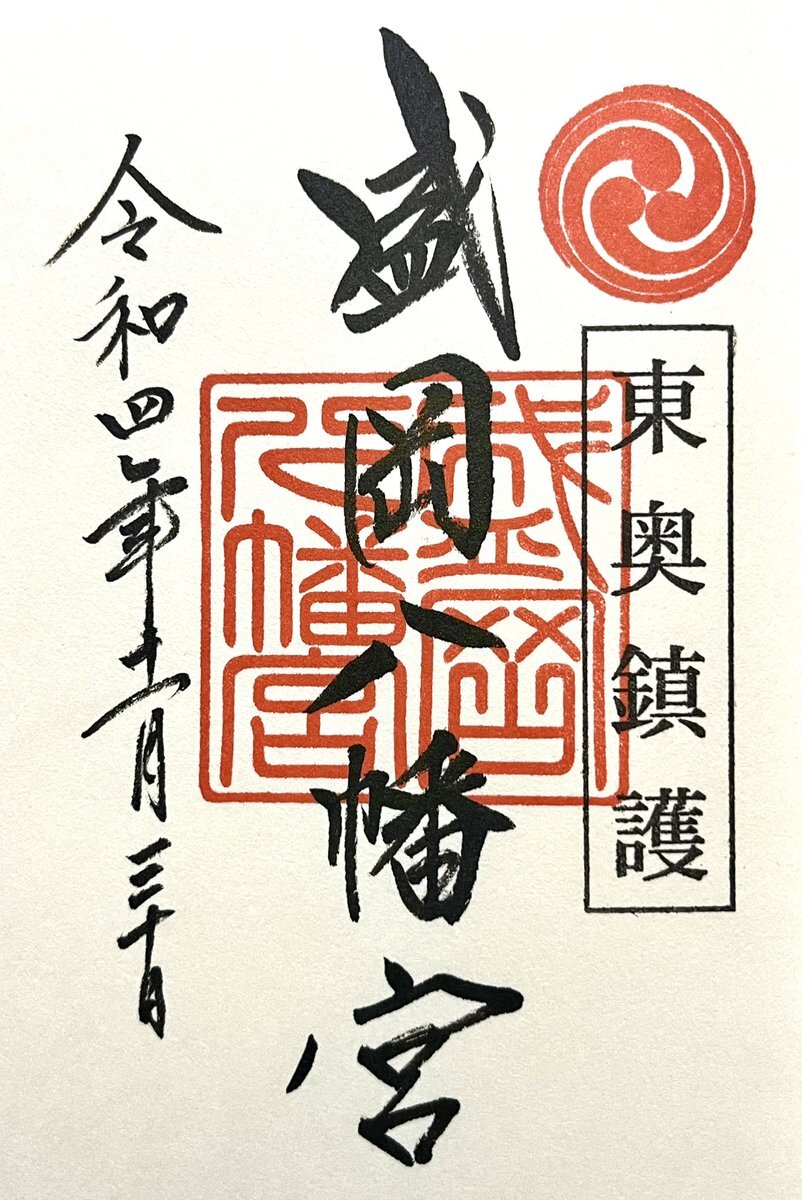 東奥鎮護
盛岡八幡宮
盛岡
八幡宮
令和四年十一月三十日